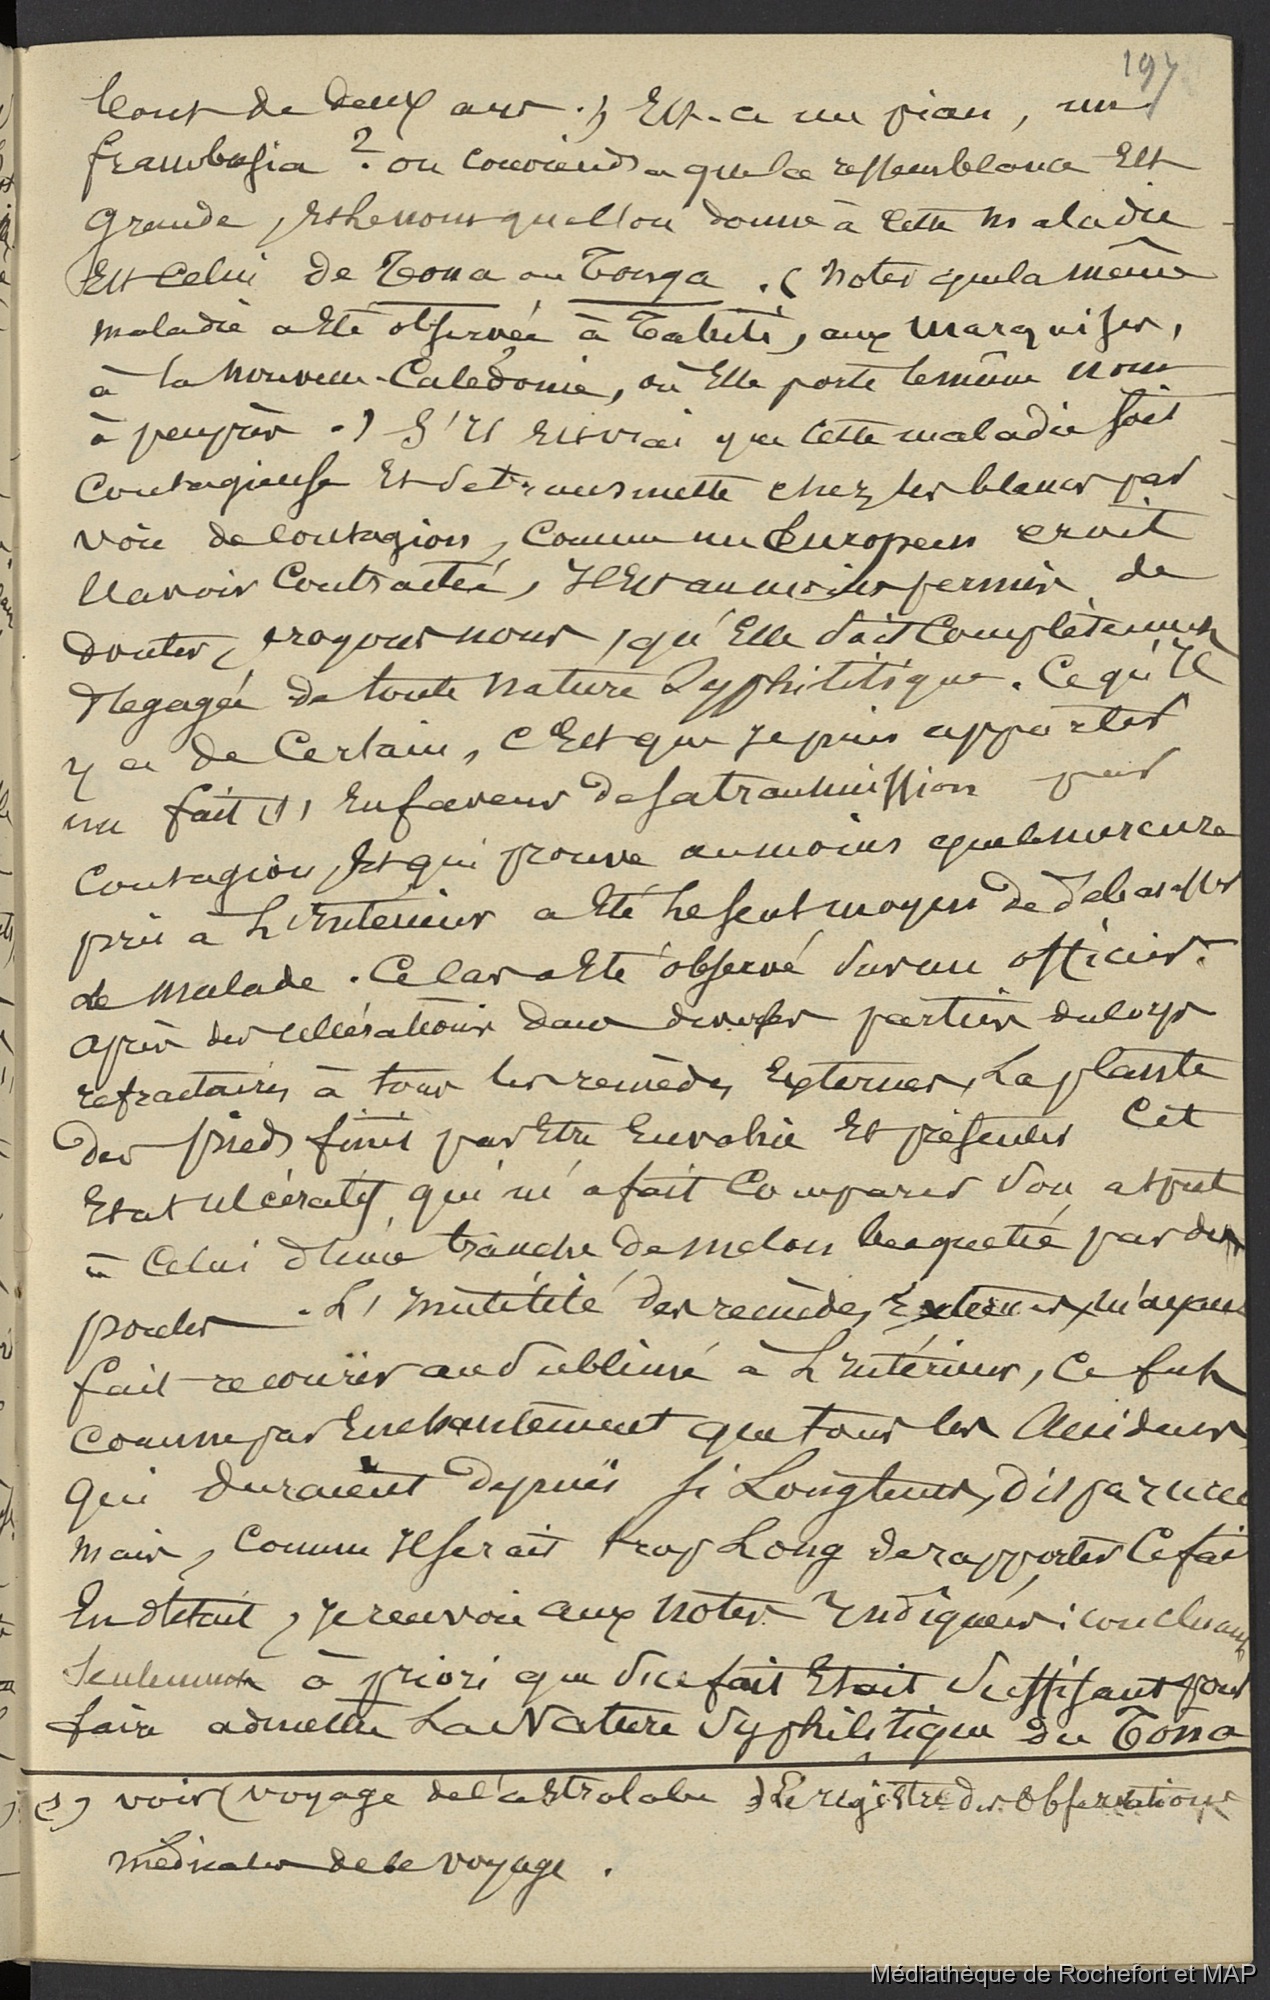 197
bout de deux ans .) Est-ce un pian, un
frambœsia ? on conviendra que la ressemblance Est
Grande, Et le nom que l'on donne à cette Maladie
Est Celui de Tona ou Tonga . ( Noter que la même
maladie a Eté observée à Tahiti, aux Marquises,
à la Nouvelle-Calédonie, où Elle porte le même nom
à peu près .) S'Il Est vrai que cette maladie soit
Contagieuse Et se transmette chez les blancs par
voie de contagion, comme un Européen croit
l'avoir Contractée, Il Est au moins permis de
douter, croyons nous, qu'Elle soit Complètement
dégagée de toute Nature Syphilitique. Ce qu'Il
y a de Certain, c'Est que Je puis apporter
un fait (1) En faveur de sa transmission par
Contagion, Et qui prouve au moins que le mercure
pris à L'Intérieur a Eté Le seul moyen de débarasser
le Malade . Ce cas a Eté observé sur un officier.
Après des ulcérations dans diverses parties du corps
refractaires à tous les remèdes Externes, La plante
des pieds finit par Etre Envahie Et présenter Cet
Etat ulcératif qui m'a fait Comparer son aspect
à Celui d'une tranche de melon becquetée par des
poules . L'Inutilité des remèdes Externes, m'ayant
fait recourir au Sublimé à L'Intérieur, Ce fut
comme par Enchantement que tous les Accidens
qui duraient depuis si Longtems, disparurent
mais, comme Il serait trop Long de rapporter Ce fait
En détail, Je renvoie aux Notes Indiquées ; concluant
Seulement à priori que si ce fait Etait suffisant pour
faire admettre La Nature Syphilitique du Tona
(1) voir ( voyage de l'astrolabe ) Le registre des Observations
médicales de ce voyage .
Médiathèque de Rochefort et MAP